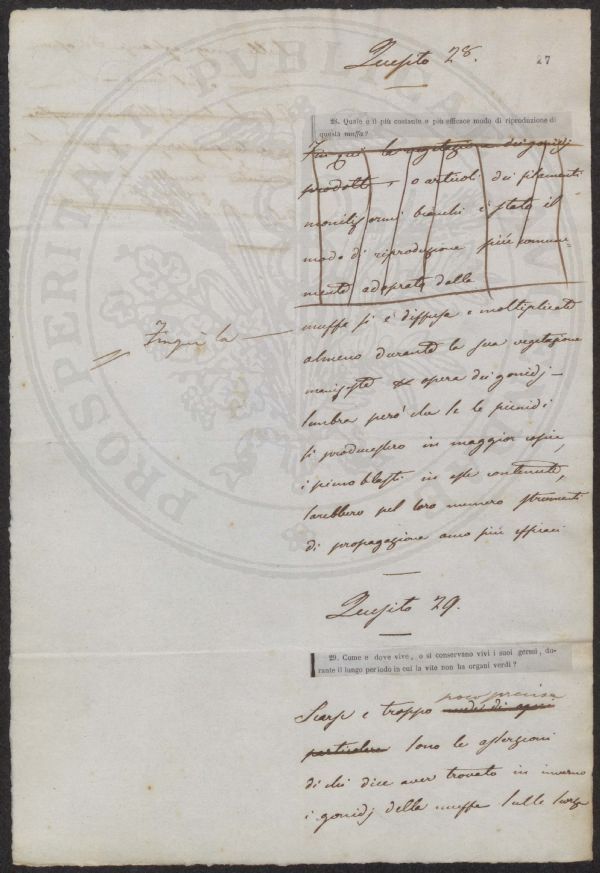 Quesito 28.
27
28. Quale è il più costante e più efficace modo di riproduzione di
questa muffa?
Fin qui la vegetazione dei gonidj
prodotti o articoli dei filamenti
moniliformi bianchi è stato il
modo di riproduzione più comune
mente adoprato dalla
Finquì la —
muffa si è diffusa e moltiplicata
almeno durante la sua vegetazione
manifesta opera dei gonidj —
Sembra però che se le picnidi
si producessero in maggior copia,
i in esse contenuti,
sarebbero pel loro numero strumenti
di propagazione anco più efficaci
Quesito 29.
29. Come e dove vive, o si conservano vivi i suoi germi, du-
rante il lungo periodo in cui la vite non ha organi verdi?
poco precise
Scarse e troppo
particolare sono le asserzioni
di chi dice aver trovato in inverno
i gonidj della muffa sulle scorze
PROSPERITATI PUBLICAE